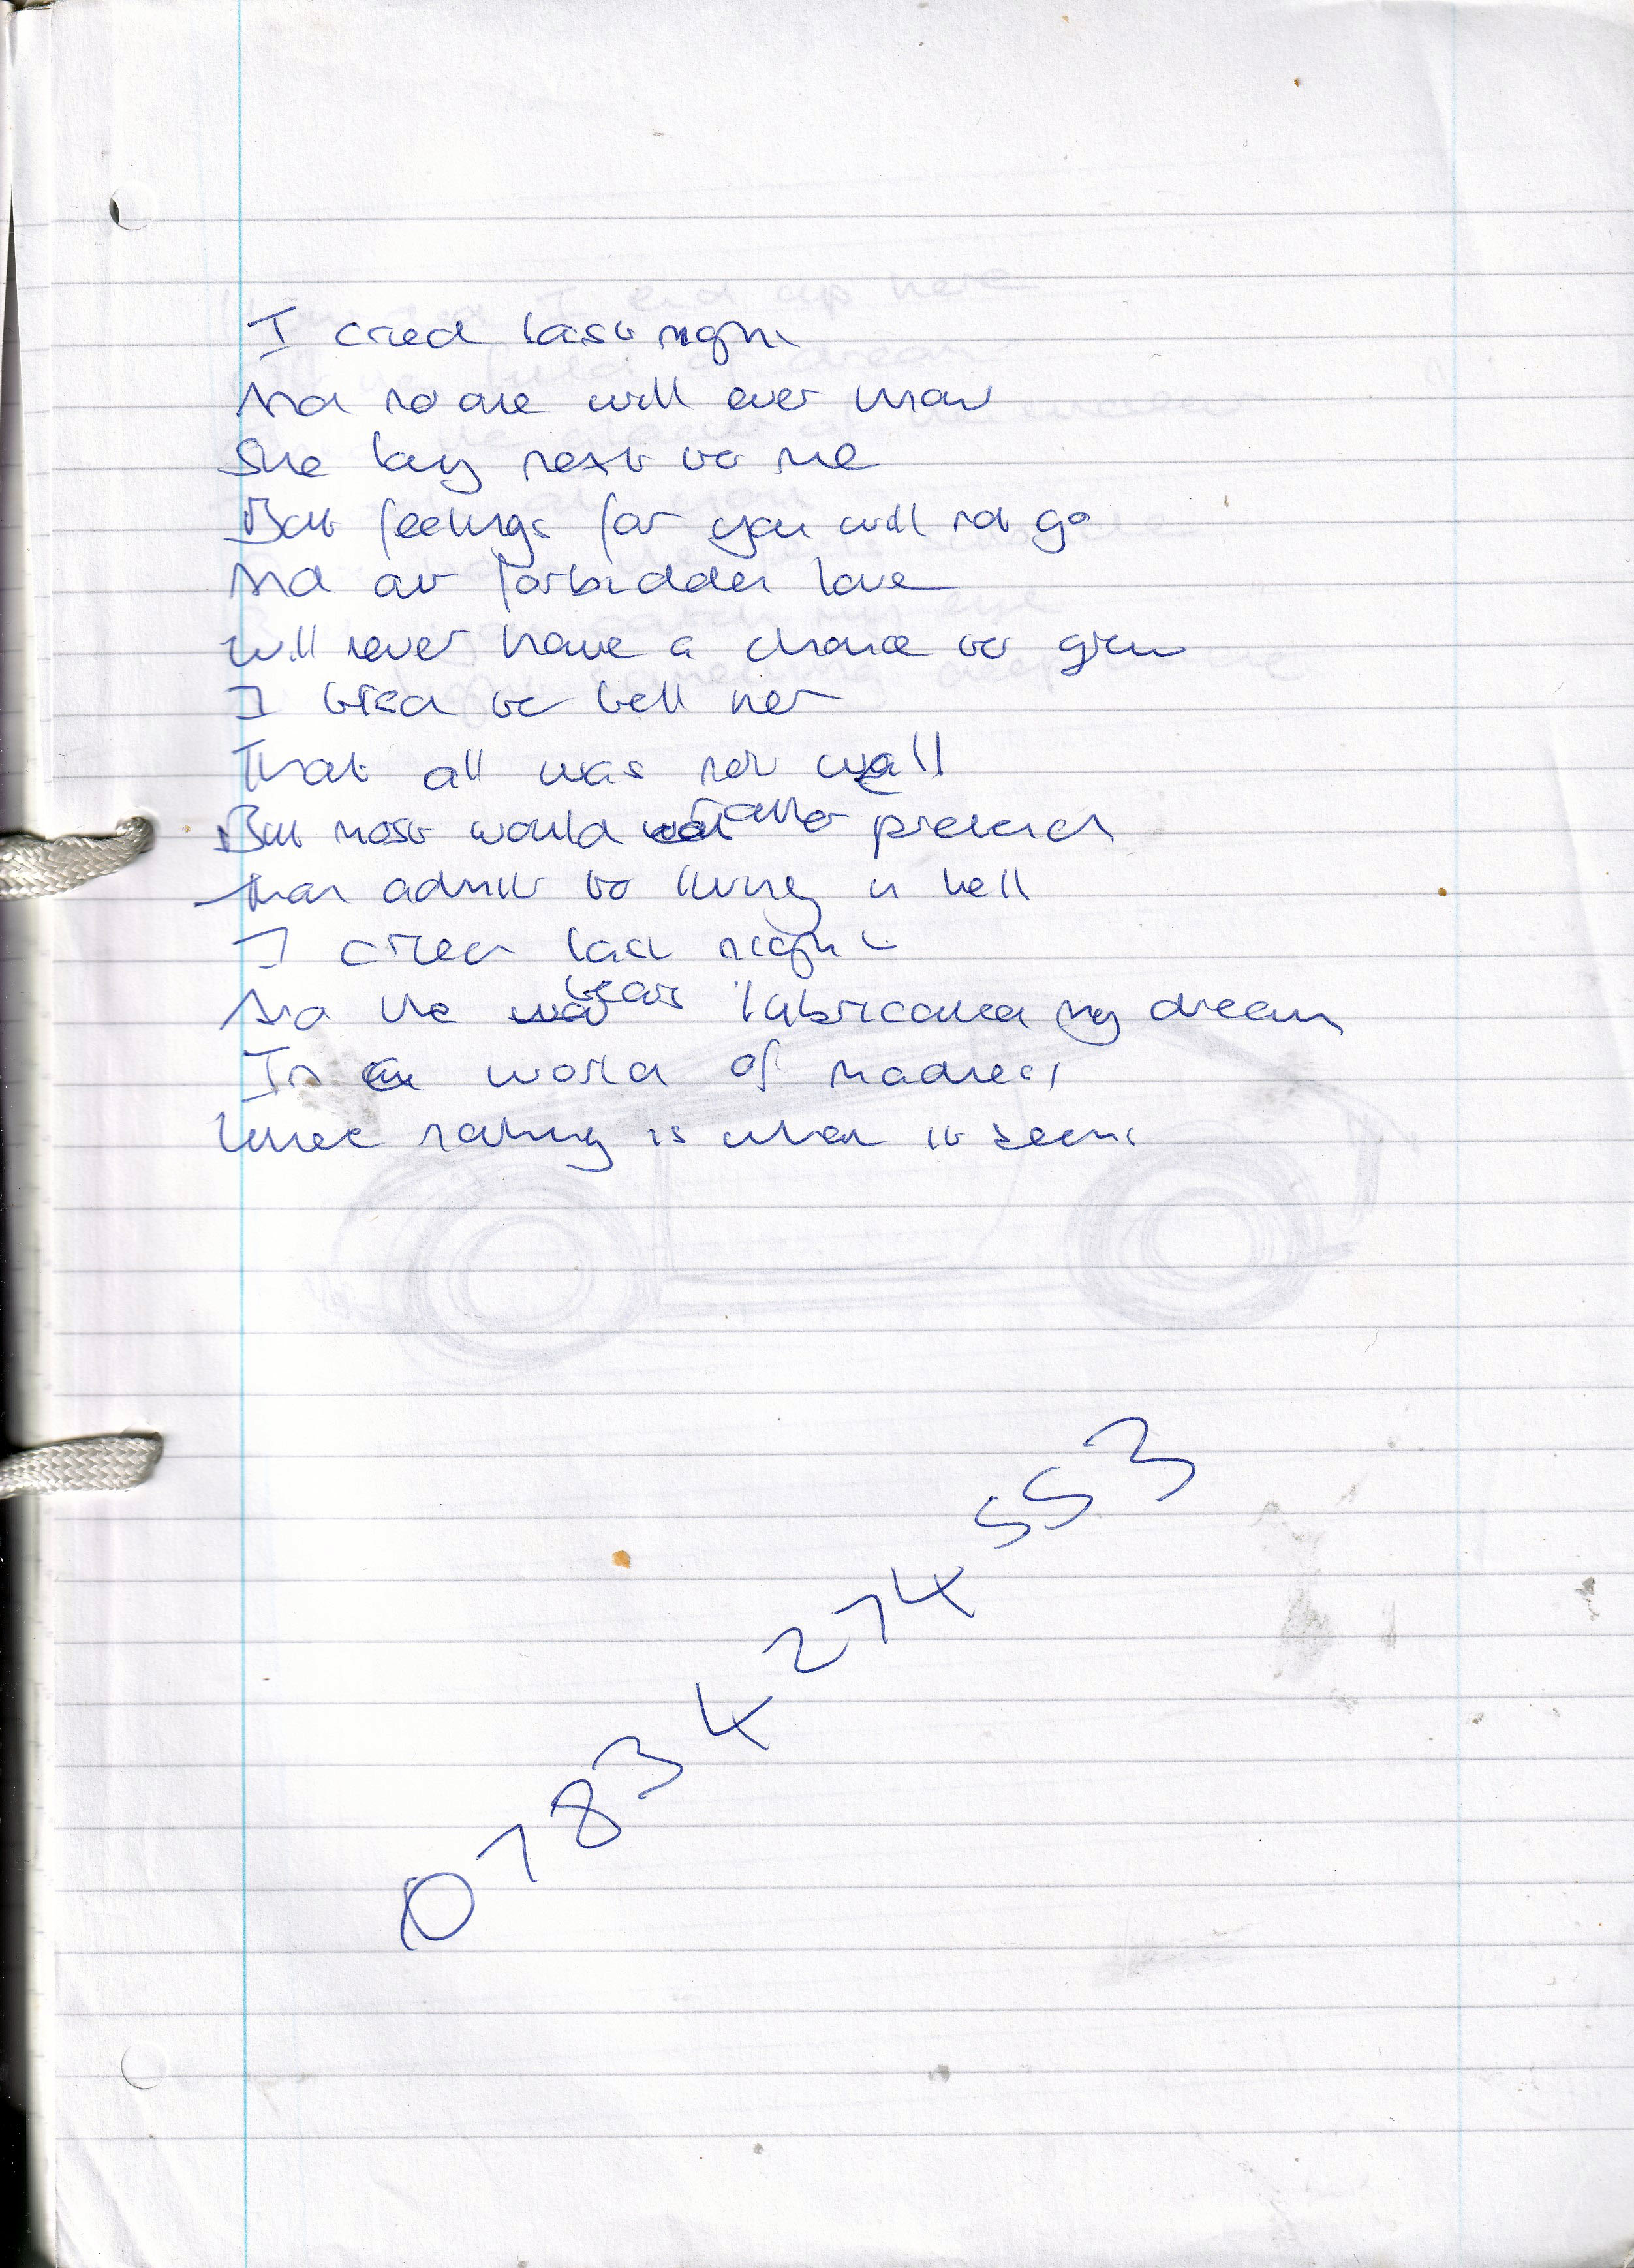 I cried last night
And no one will ever know
She lay next to me
But feelings for you will not go
And our forbidden love
Will never have a chance to grow
I tried to tell her
That all was not well
But most would rather pretend
than admit to living in hell
I cried last night
And the tears lubricated my dream
In a world of madness
Where nothing is what it seems
07834274553